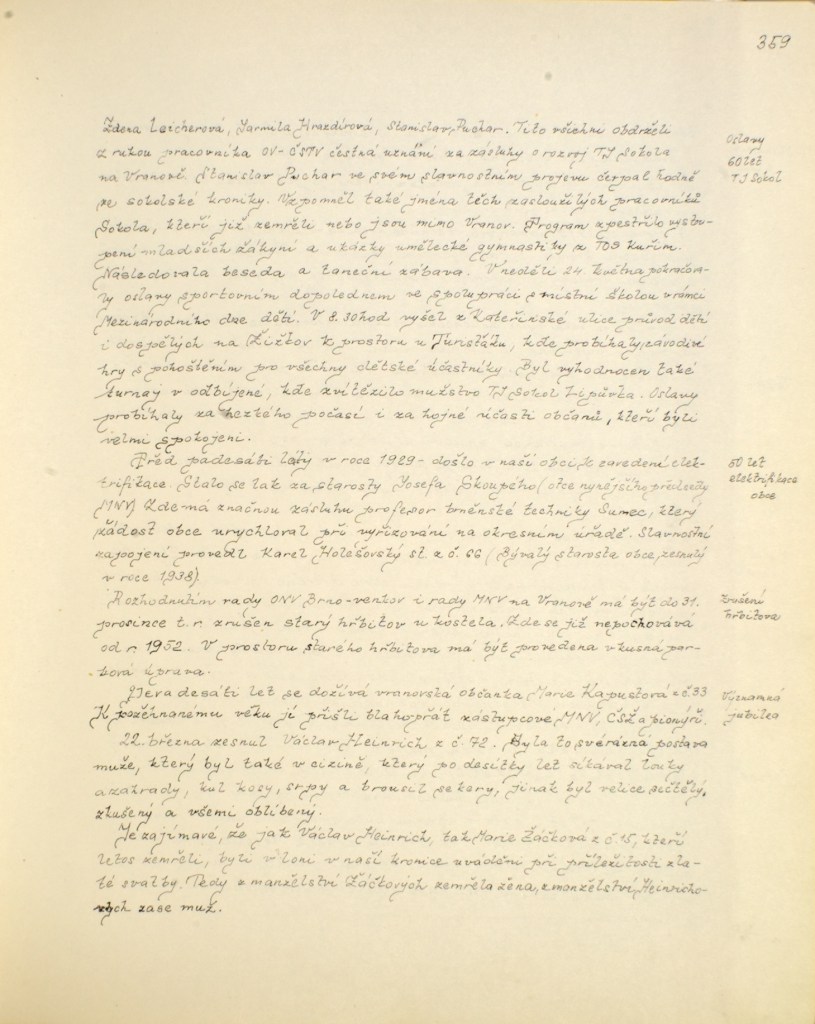 359
Zdena Leicherová, Jarmila Hrazdírová, Stanislav Puchar. Tito všichni obdrželi
z rukou pracovníka OV-ČSTV čestná uznání za zásluhy o rozvoj TJ Sokola
na Vranově. Stanislav Puchar ve svém slavnostním projevu čerpal hodně
ze sokolské kroniky. Vzpomněl také jména těch zasloužilých pracovníků
Sokola, kteří již zemřeli nebo jsou mimo Vranov. Program zpestřilo vystou-
pení mladších žákyní a ukázky umělecké gymnastiky z TOS Kuřim.
Následovala beseda a taneční zábava. V neděli 24 května pokračova-
ly oslavy sportovním dopolednem ve spolupráci s místní školou v rámci
Mezinárodního dne dětí. V 8.30 hod vyšel z Kateřinské ulice průvod dětí
i dospělých na Žižkov k prostoru u Turisťáku, kde probíhaly závodivé
hry s pohoštěním pro všechny dětské účastníky. Byl vyhodnocen také
turnaj v odbíjené, kde zvítězilo mužstvo TJ Sokol Lipůvka. Oslavy
probíhaly za hezkého počasí i za hojné účasti občanů, kteří byli
velmi spokojeni.
Oslavy
60 let
TJ Sokol
Před padesáti léty v roce 1929 - došlo v naší obci k zavedení elek-
trifikace. Stalo se tak za starosty Josefa Skoupého (otce nynějšího předsedy
MNV) Zde má značnou zásluhu profesor brněnské techniky Sumec, který
žádost obce urychloval při vyřizování na okresním úřadě. Slavnostní
zapojení provedl Karel Holešovský st. z č. 66 (Bývalý starosta obce, zesnulý
v roce 1938).
50 let
elektrifikace
obce
Rozhodnutím rady ONV Brno-venkov i rady MNV na Vranově má být do 31.
prosince t.r. zrušen starý hřbitov u kostela. Zde se již nepochovává
od r. 1952. V prostoru starého hřbitova má být provedena vkusná par-
ková úprava.
Zrušení
hřbitova
Devadesáti let se dožívá vranovská občanka Marie Kapustová z č. 33
K požehnanému věku jí přišli blahopřát zástupcové MNV, ČSŽ a pionýři.
Významná
jubilea
22. března zesnul Václav Heinrich z č. 72. Byla to svérázná postava
muže, který byl také v cizině, který po desítky let sikával louky
a zahrady, kul kosy, srpy a brousil sekery, jinak byl velice sečtělý,
zkušený a všemi oblíbený.
Je zajímavé, že jak Václav Heinrich, tak Marie Žáčková z č. 15, kteří
letos zemřeli, byli v loni v naší kronice uváděni při příležitosti zla-
té svatby. Tedy z manželství Žáčkových zemřela žena, z manželství Heinricho-
vých zase muž.